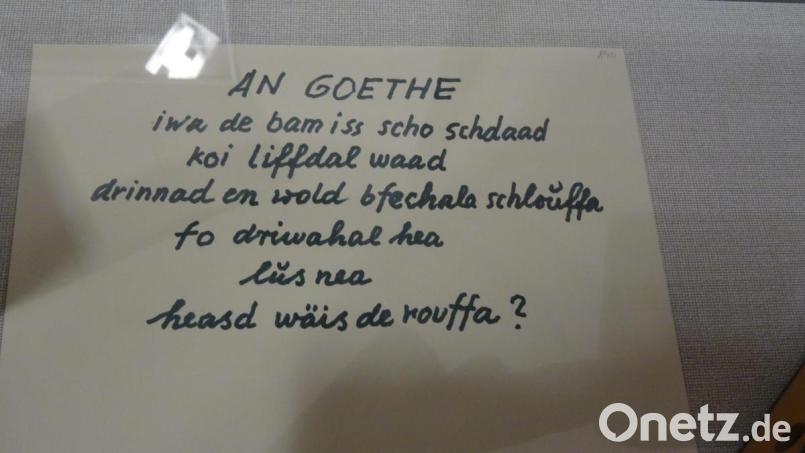 AN GOETHE
iwa de bam iss scho schdaad
koi liffdal waad
drinnad en wold bfechala schloŭffa
fo driwahal hea
lŭs nea
heasd wäis de rouffa?
Onetz.de